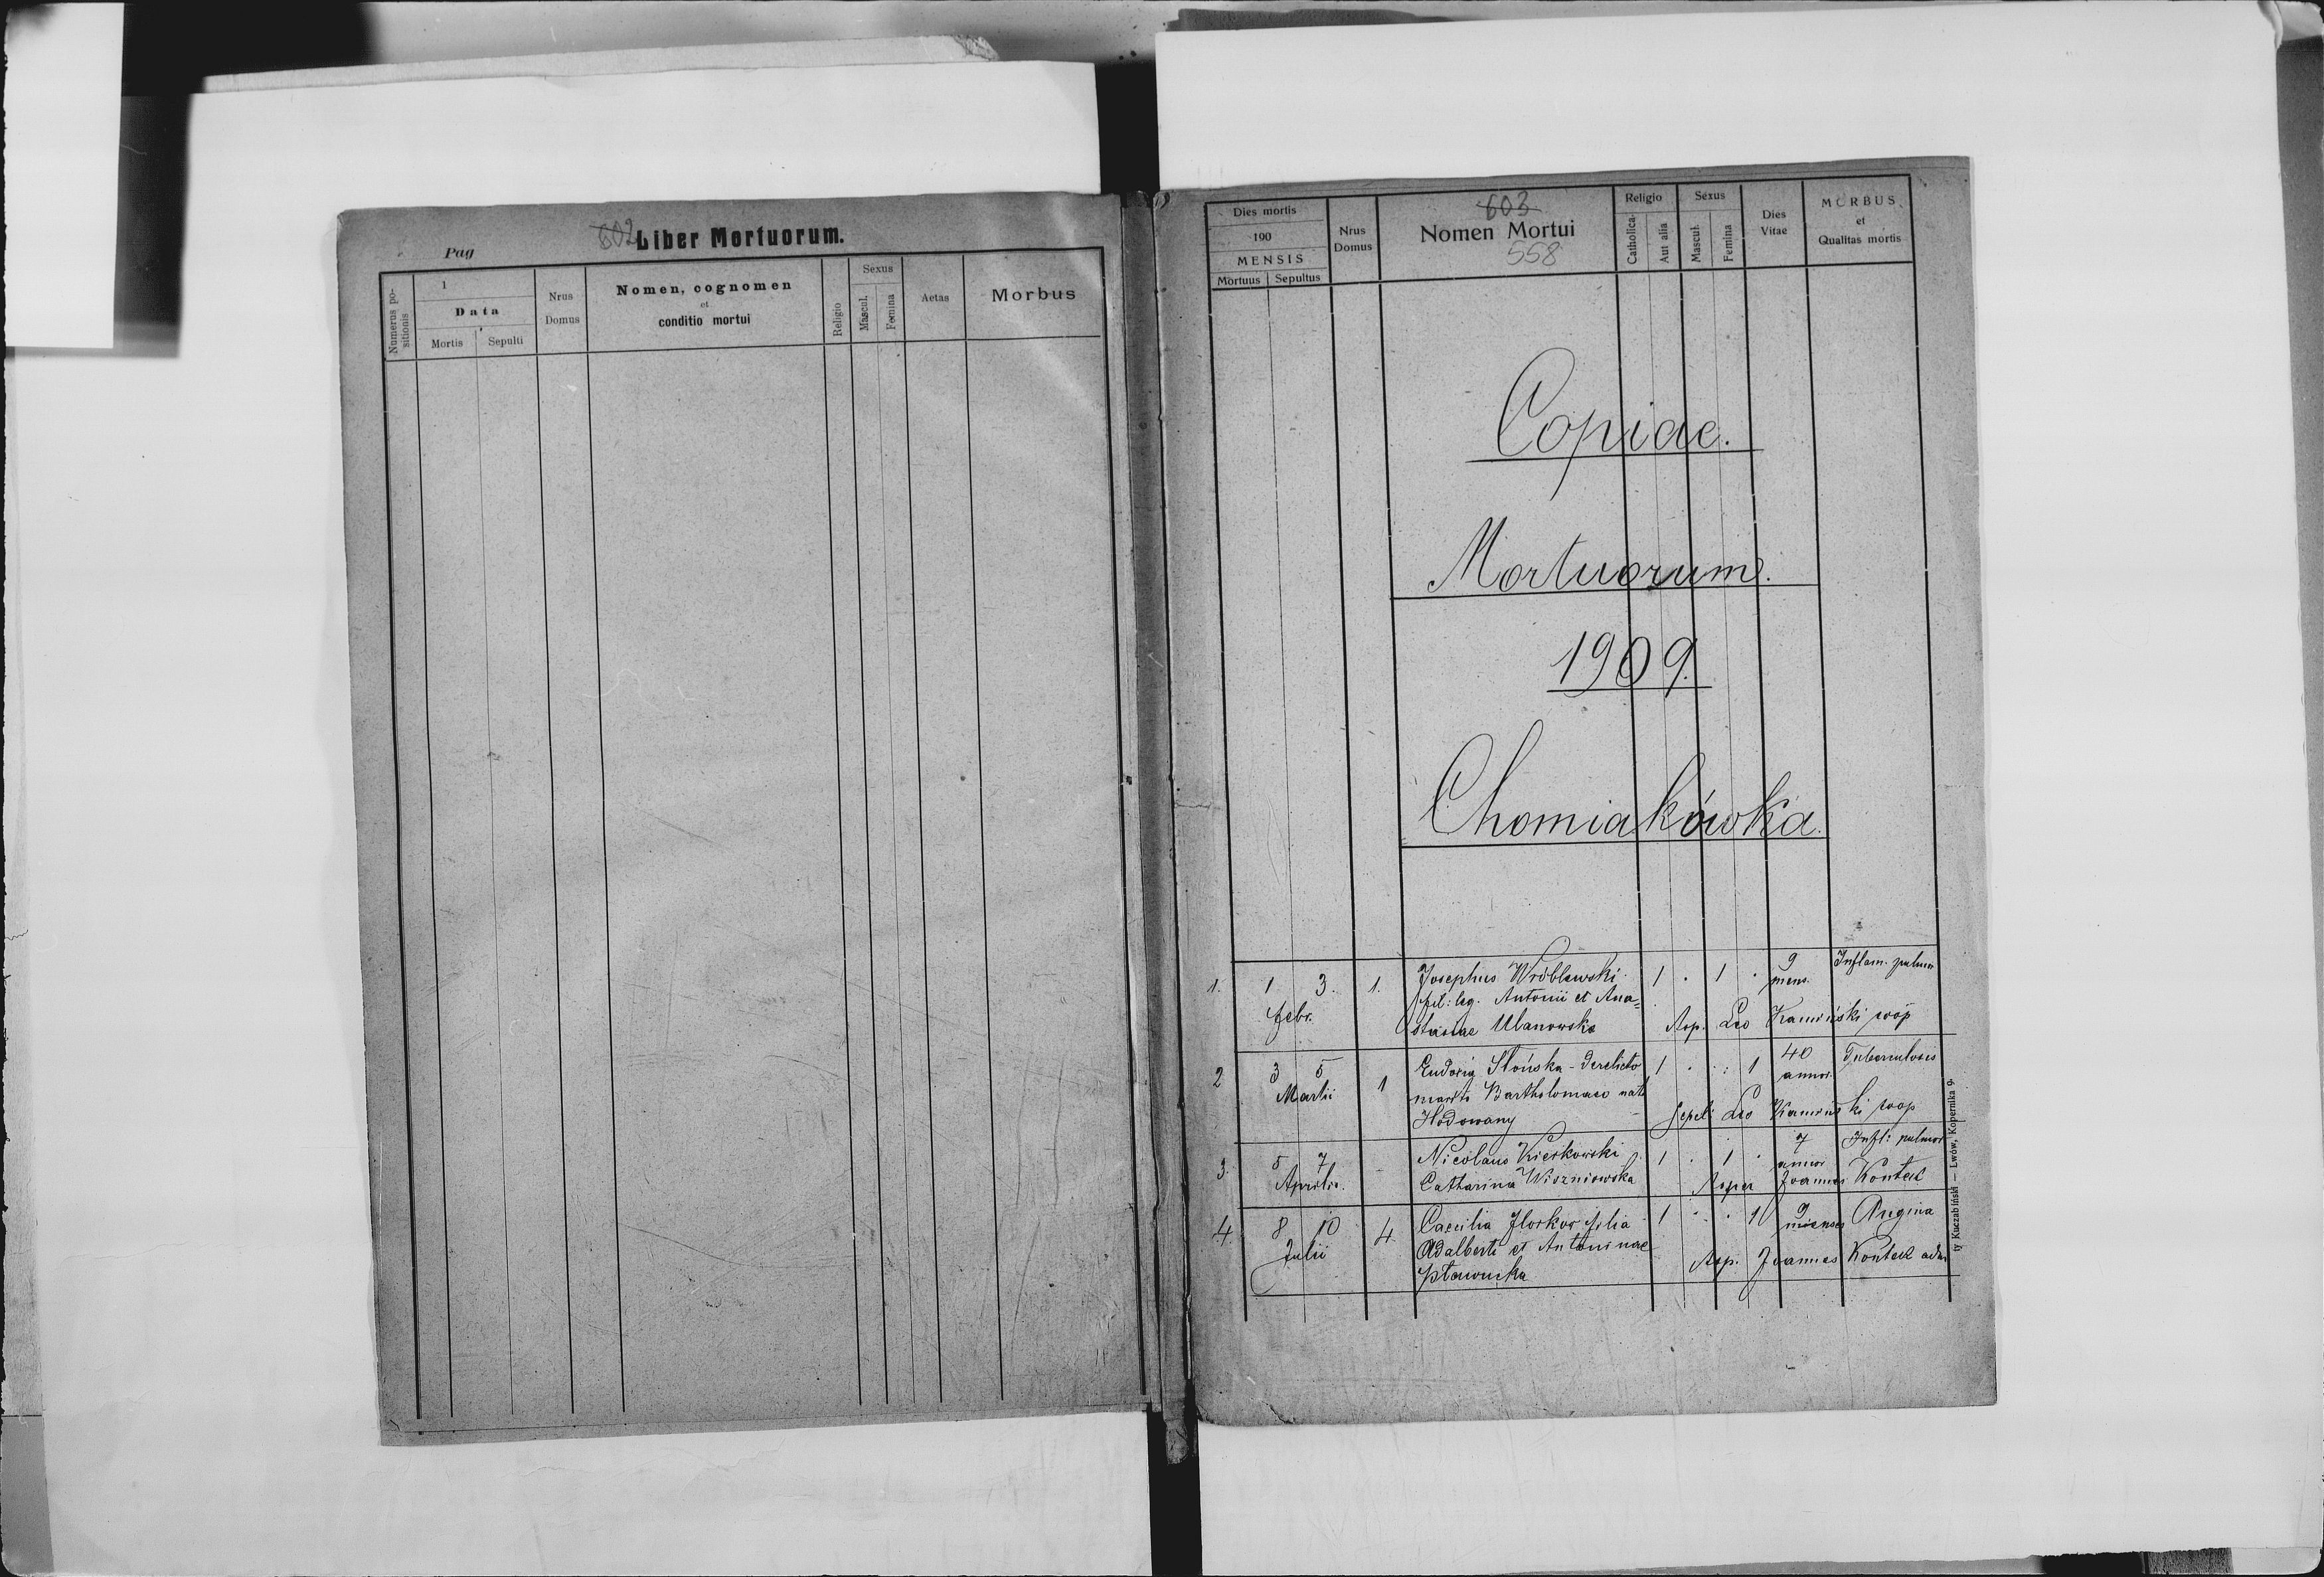 602
Liber Mortuorum.
Pag
Numerus positionis
1
Data
Mortis
Sepulti
Nrus
Domus
Nomen, cognomen
et
conditio mortui
Religio
Sexus
Mascul.
Femina
Aetas
Morbus
Dies mortis
190
MENSIS
Mortuus
Sepultus
Nrus
Domus
603
Nomen Mortui
558
Religio
Catholica
Aut alia
Sexus
Mascul.
Femina
Dies
Vitae
MORBUS
et
Qualitas mortis
Copiae.
Mortuorum.
1909.
Chomiakówka.
1. 1 3. 1. Josephus Wróblewski 1 . 1 . 9 Inflam. pulmo
fil: leg. Antonii et Ana= mens.
febr. stasiae Ulanowska Asp. Leo Kamiński coop
2 3 5 1 Eudoxia Słońska - derelicto 1 . . 1 40 Tuberculosis
Martii marito Bartholomaeo nata annor.
Hodowany sepel: Leo Kamiński coop
3. 5 7 - Nicolaus Kieskowski 1 . 1 . 7 Infl: pulmon
Aprilis. Catharina Wiszniowska annor Asper Joannes Kontek
4. 8 10 4. Caecilia Florkov filia 1 . . 1 9 Angina
Julii Adalberti et Antoninae menses
Pławucka Asp. Joannes Kontek adm
ty Kuczabiński — Lwów, Kopernika 9.